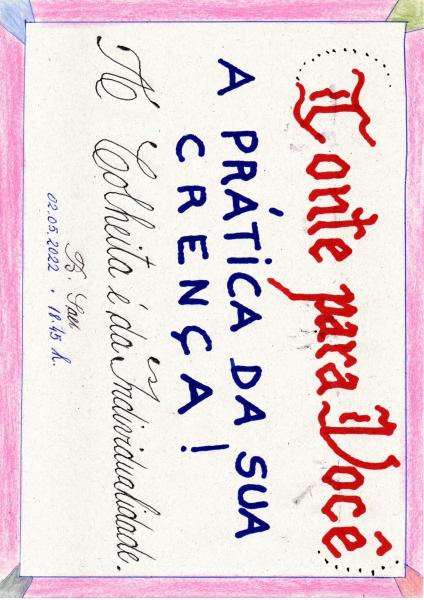 Conte para Você
A PRÁTICA DA SUA
CRENÇA!
A Colheita é da Individualidade.
02.05.2022 • 18:45 h.